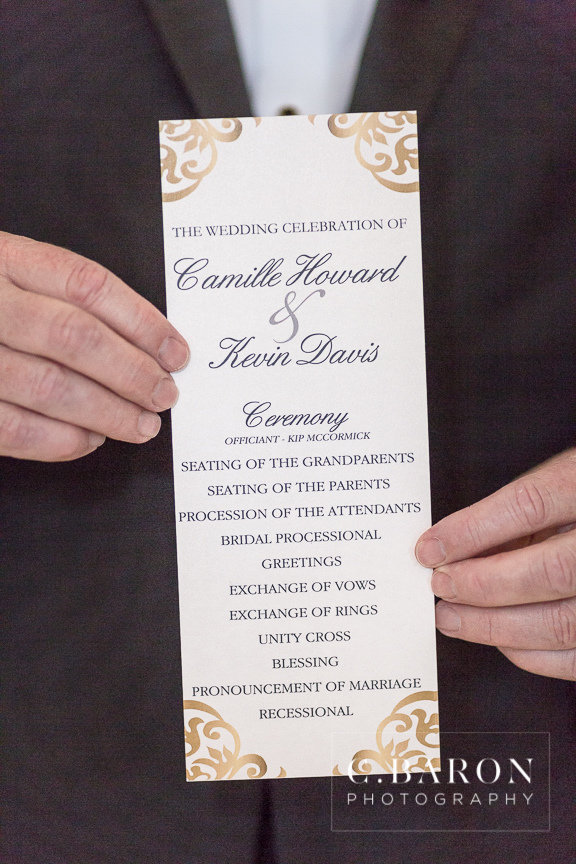 THE WEDDING CELEBRATION OF
Camille Howard
&
Kevin Davis
Ceremony
OFFICIANT - KIP MCCORMICK
SEATING OF THE GRANDPARENTS
SEATING OF THE PARENTS
PROCESSION OF THE ATTENDANTS
BRIDAL PROCESSIONAL
GREETINGS
EXCHANGE OF VOWS
EXCHANGE OF RINGS
UNITY CROSS
BLESSING
PRONOUNCEMENT OF MARRIAGE
RECESSIONAL
C.BARON
PHOTOGRAPHY